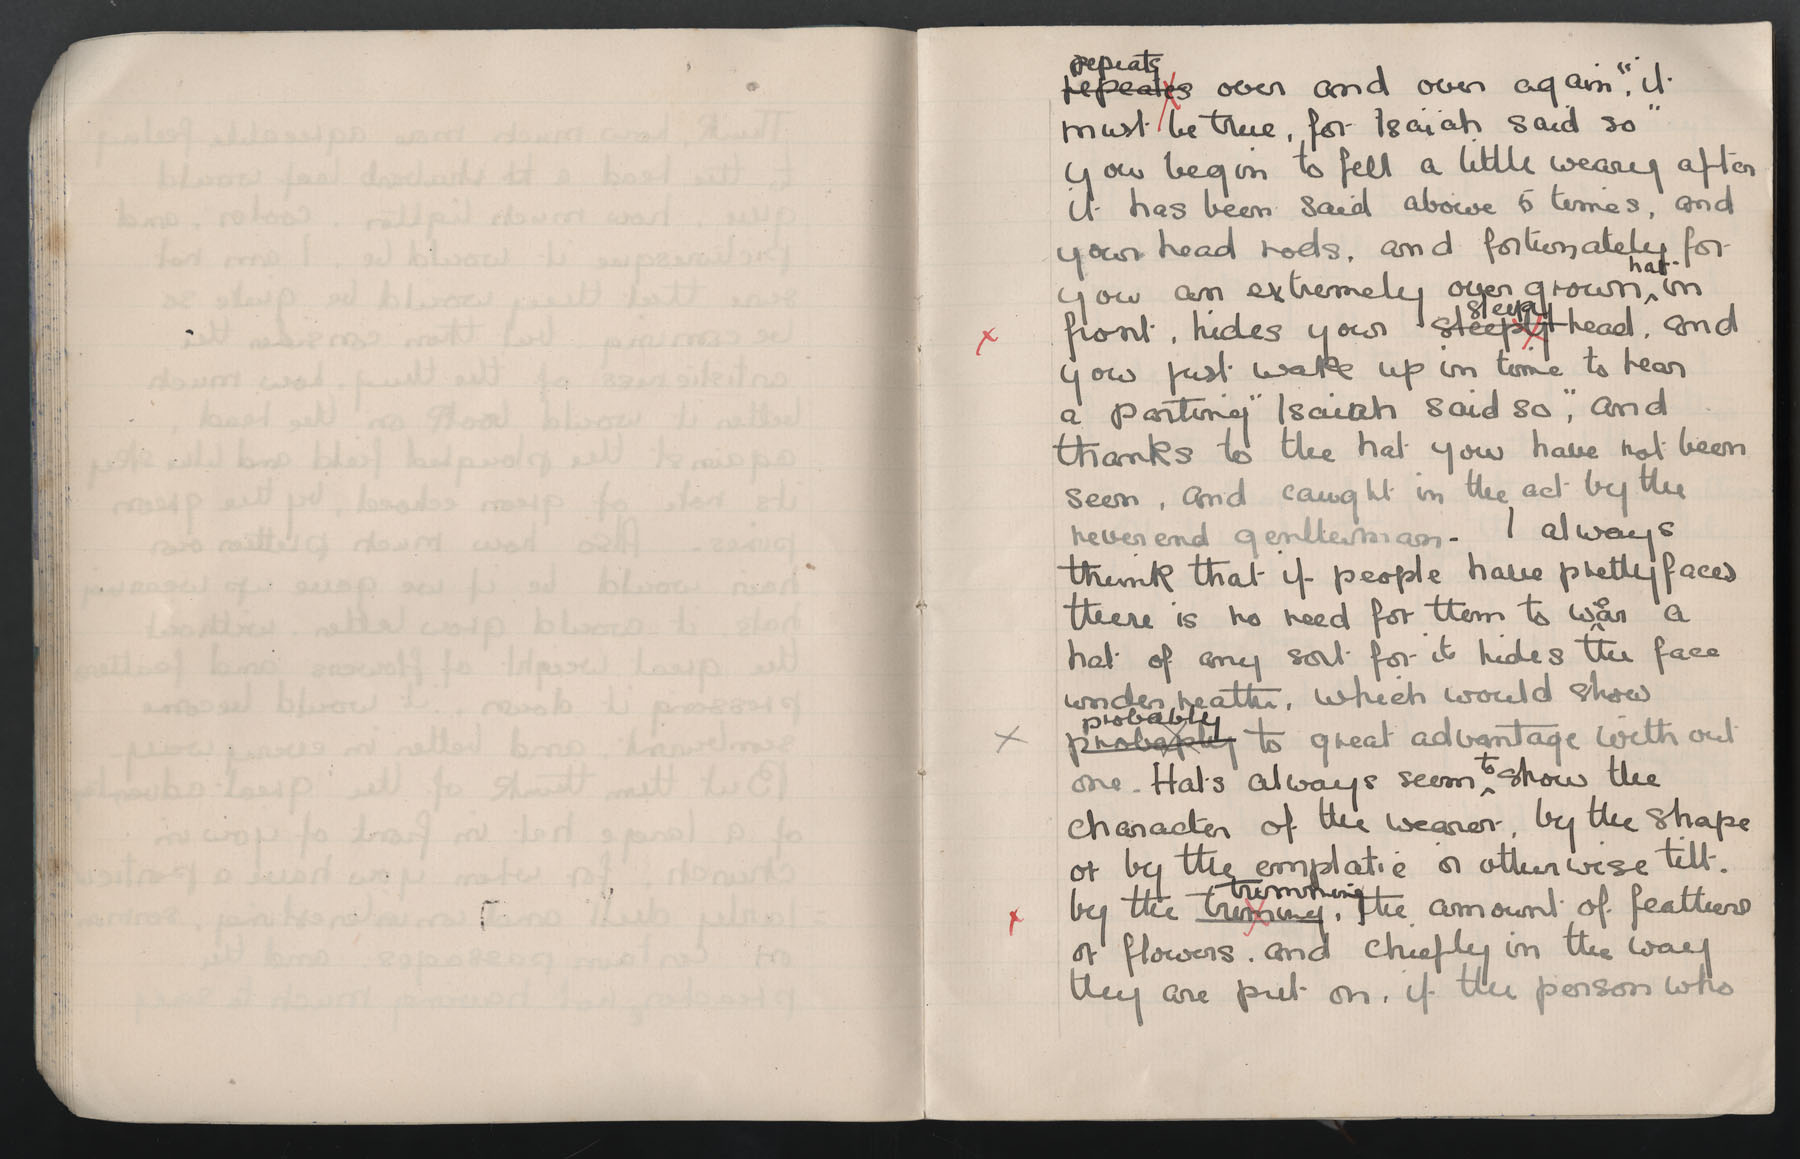 repeats
repeates over and over again", it
must be true, for Isaiah said so"
you begin to fell a little weary after
it has been said above 6 times, and
your head nods, and fortunately for
you an extremely overgrown hat in
front, hides your steeply sleepy head, and
you just wake up in time to hear
a parting" Isaiah said so", and
thanks to the hat you have not been
seen, and caught in the act by the
reverend gentleman. I always
think that if people have pretty faces
there is no need for them to wear a
hat of any sort for it hides the face
underneath, which would show
probably
probaply to great advantage without
one. Hats always seem to show the
character of the wearer, by the shape
or by the emplatic or otherwise tilt.
by the triming trimming, the amount of feathers
or flowers. and chiefly in the way
they are put on, if the person who